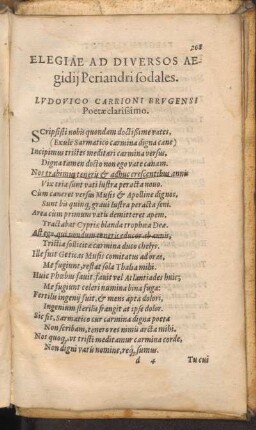 208
ELEGIAE AD DIVERSOS AE-
gidij Periandri sodales.
LVDOVICO CARRIONI BRVGENSI
Poetæ clarissimo.
SCripsisti nobis quondam doctissime vates,
(Exule Sarmatico carmina digna cane)
Incipimus tristes meditari carmina versus,
Digna tamen docto non ego vate canam.
Nos trahimur teneris & adhuc crescentibus annis
Vix tria sunt vati lustra peracta nouo.
Cùm caneret versus Musis & Apolline dignos,
Sunt his quinq, graui lustra peracta seni.
Area cùm primùm vatis demitteret apem,
Tractabat Cypriæ blanda trophæa Deæ.
Ast ego, qui nondum teneris educor ab annis,
Tristia sollicito carmina duco chelye.
Ille suas Geticas Musis comitatus ad oras,
Me fugiunt, restat sola Thalia mihi.
Huic Phœbus fauit, fauit vel Atlantiades huic;
Me fugiunt celeri numina bina fuga:
Fertilis ingenij fuit, & mens apta dolori,
Ingenium sterilis frangit at ipse dolor.
Sic fit, Sarmatico cur carmina digna poeta
Non scribam, tenero res nimis arcta mihi.
Nos quoq, vt tristi meditamur carmina corde,
Non digni vatis nomine, req, sumus.
d 4
Tu cui